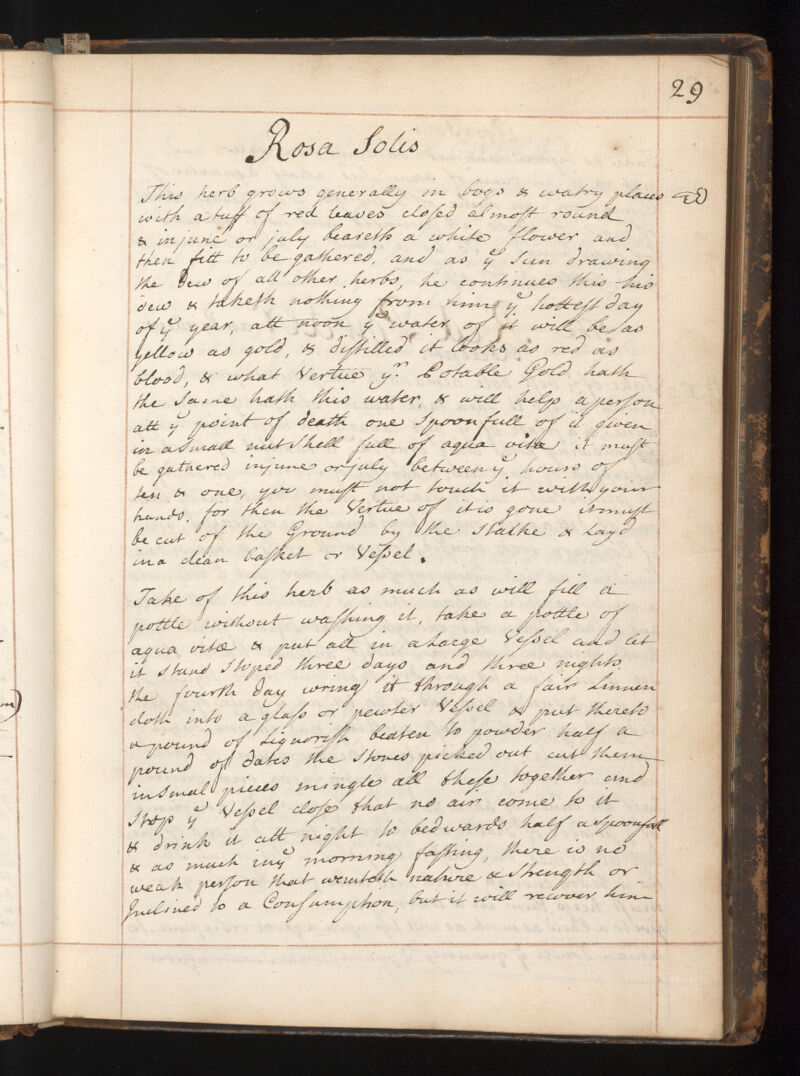 29
Rosa Solis
This herb grows generally in bogs & watry places
with a tuff of red leaves closed almost round
& in june or july beareth a white flower and
then fitt to be gathered, and as yͤ Sun drawing
the Dew of all other herbs, he continues this his
dew & taketh nothing from him yͤ hottest day
of yͤ year, att noon yͤ water of it will be as
yellow as gold, & distilled it looks as red as
blood, & what Vertue yͫ Potable Gold hath
the same hath this water, & will help a person
att yͤ point of death one Spoonfull of it given
in a small nut Shell full of aqua vitæ it must
be gathered in june or july between yͤ hours of
ten & one, you must not touch it with your
hands, for then the Vertue of it is gone it must
be cut of the Ground by the Stalke & Layd
in a clean basket or Vessel.
Take of this herb as much as will fill a
pottle without washing it, take a pottle of
aqua vitæ & put all in a Large Vessel and let
it stand stoped three days and three nights
the fourth day wring it through a fair Linnen
cloth into a glass or pewter Vessel & put thereto
a pound of Liquorish beaten to powder half a
pound of dates the stones picked out cut them
in smal pieces mingle all these together and
Stop yͤ Vessel close that no air come to it
& drink it att night to bedwards half a spoonfull
& as much in yͤ morning fasting, there is no
weak person that wanteth nature & strength or
Inclined to a Consumption, but it will recover him